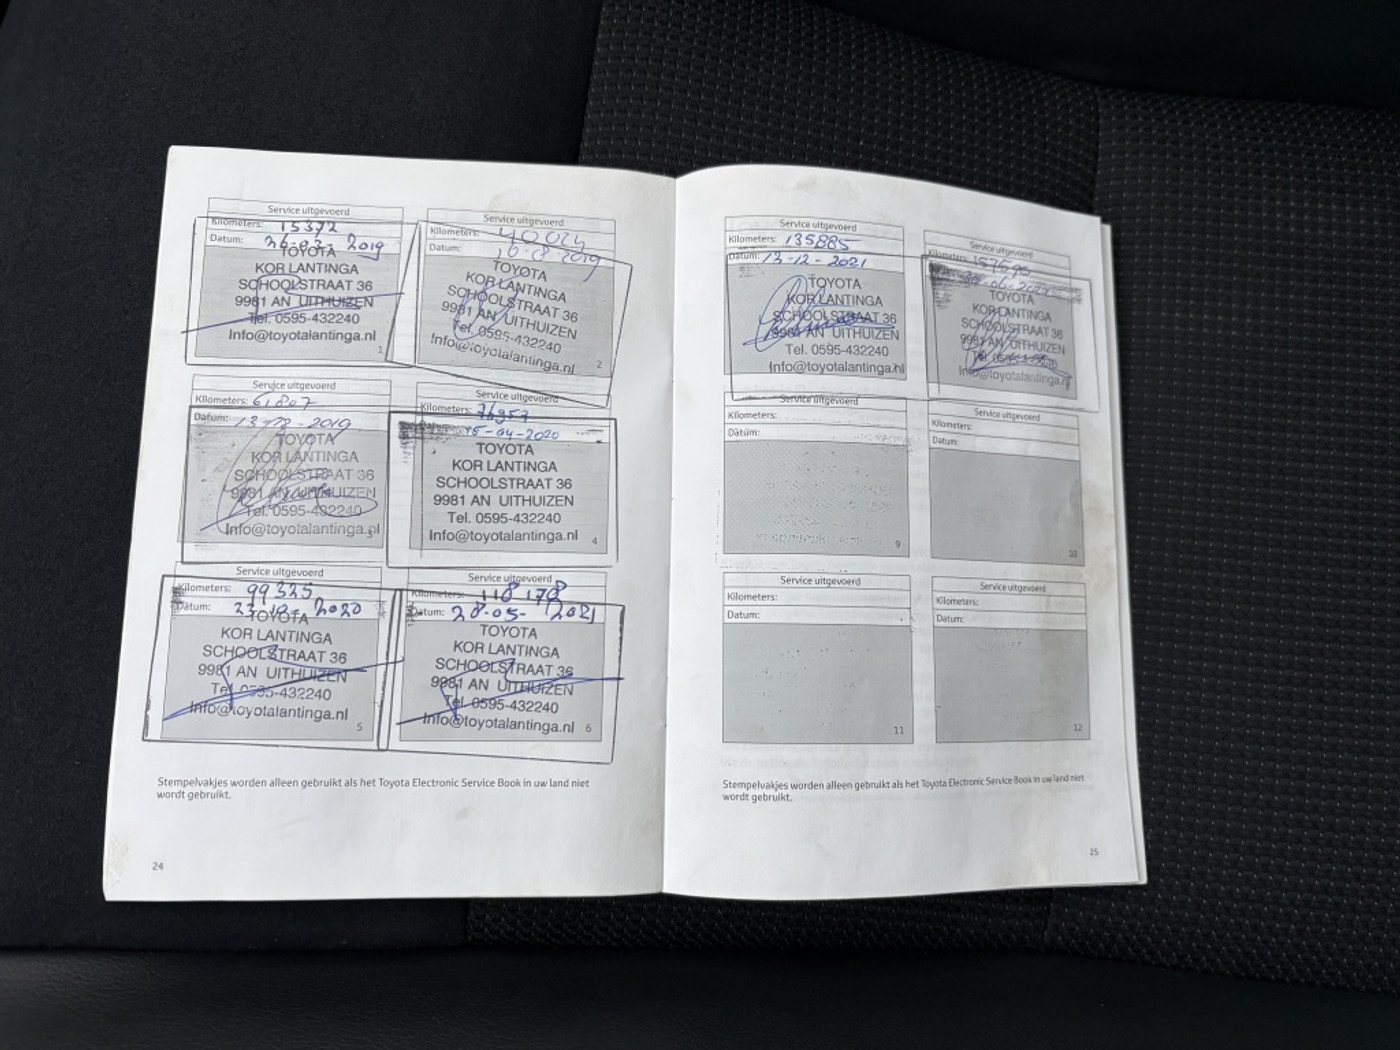 Service uitgevoerd
Kilometers: 15372
Datum: 26-03-2019
TOYOTA
KOR LANTINGA
SCHOOLSTRAAT 36
9981 AN UITHUIZEN
Tel. 0595-432240
Info@toyotalantinga.nl
1
Service uitgevoerd
Kilometers: 40024
Datum:
TOYOTA
KOR LANTINGA
SCHOOLSTRAAT 36
9981 AN UITHUIZEN
Tel. 0595-432240
Info@toyotalantinga.nl
2
Service uitgevoerd
Kilometers: 61807
Datum: 13-12-2019
TOYOTA
KOR LANTINGA
SCHOOLSTRAAT 36
9981 AN UITHUIZEN
Tel. 0595-432240
Info@toyotalantinga.nl
3
Service uitgevoerd
Kilometers: 76957
Datum: 15-04-2020
TOYOTA
KOR LANTINGA
SCHOOLSTRAAT 36
9981 AN UITHUIZEN
Tel. 0595-432240
Info@toyotalantinga.nl
4
Service uitgevoerd
Kilometers: 99325
Datum: 2020
TOYOTA
KOR LANTINGA
SCHOOLSTRAAT 36
9981 AN UITHUIZEN
Tel. 0595-432240
Info@toyotalantinga.nl
5
Service uitgevoerd
Kilometers: 118178
Datum: 28-05-2021
TOYOTA
KOR LANTINGA
SCHOOLSTRAAT 36
9981 AN UITHUIZEN
Tel. 0595-432240
Info@toyotalantinga.nl
6
Stempelvakjes worden alleen gebruikt als het Toyota Electronic Service Book in uw land niet
wordt gebruikt.
24
Service uitgevoerd
Kilometers: 135885
Datum: 13-12-2021
TOYOTA
KOR LANTINGA
SCHOOLSTRAAT 36
9981 AN UITHUIZEN
Tel. 0595-432240
Info@toyotalantinga.nl
Service uitgevoerd
Kilometers:
TOYOTA
KOR LANTINGA
SCHOOLSTRAAT 36
9981 AN UITHUIZEN
Tel. 0595-432240
Info@toyotalantinga.nl
Service uitgevoerd
Kilometers:
Datum:
9
Service uitgevoerd
Kilometers:
Datum:
10
Service uitgevoerd
Kilometers:
Datum:
11
Service uitgevoerd
Kilometers:
Datum:
12
Stempelvakjes worden alleen gebruikt als het Toyota Electronic Service Book in uw land niet
wordt gebruikt.
25